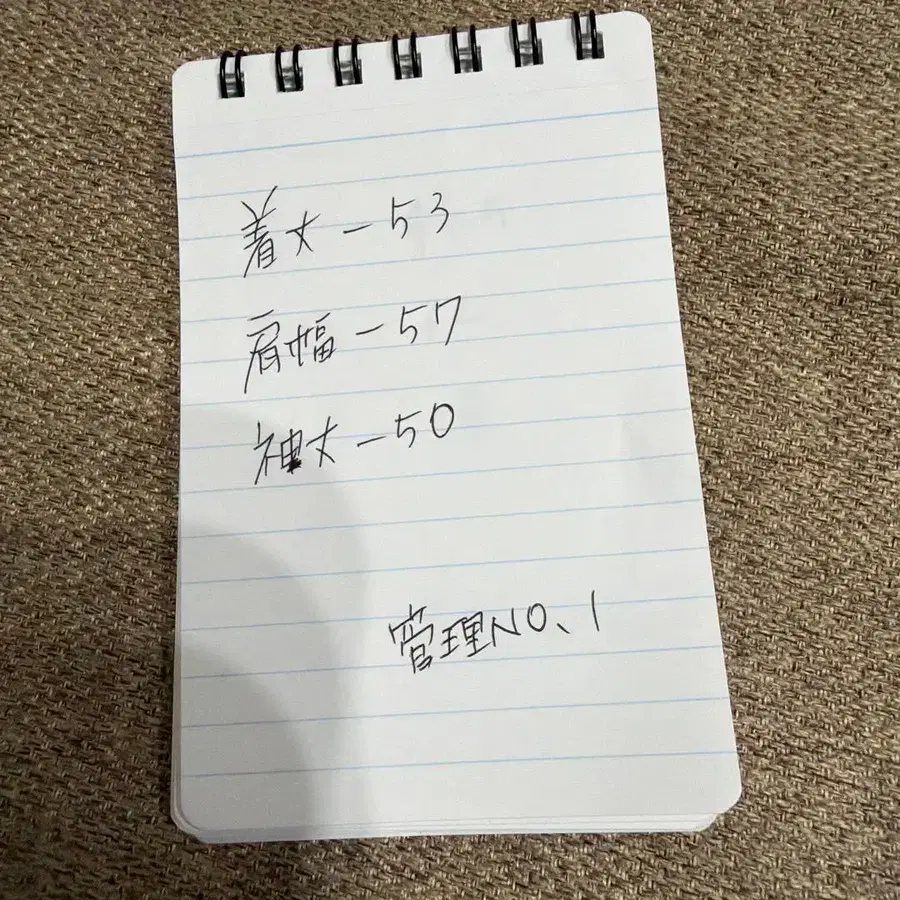 着丈-53
肩幅-57
袖丈-50
管理NO、1